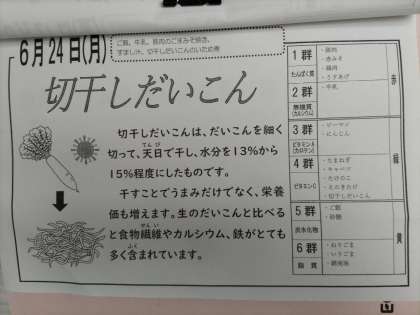 6月24日(月)
ご飯、牛乳、豚肉のごまみそ焼き、
すまし汁、切干しだいこんのいため煮
切干しだいこん
切干しだいこんは、だいこんを細く
切って、天日で干し、水分を13%から
15%程度にしたものです。
干すことでうまみだけでなく、栄養
価も増えます。生のだいこんと比べる
と食物繊維やカルシウム、鉄がとても
多く含まれています。
てんぴ
せんい
ふく
1群
たんぱく質
・豚肉
・赤みそ
・鶏肉
・うすあげ
2群
無機質
(カルシウム)
・牛乳
赤
3群
ビタミンA
(カロテン)
・ピーマン
・にんじん
4群
ビタミンC
・たまねぎ
・キャベツ
・たけのこ
・えのきたけ
・切干しだいこん
緑
5群
炭水化物
・ご飯
・砂糖
6群
脂質
・ねりごま
・いりごま
・調理油
黄